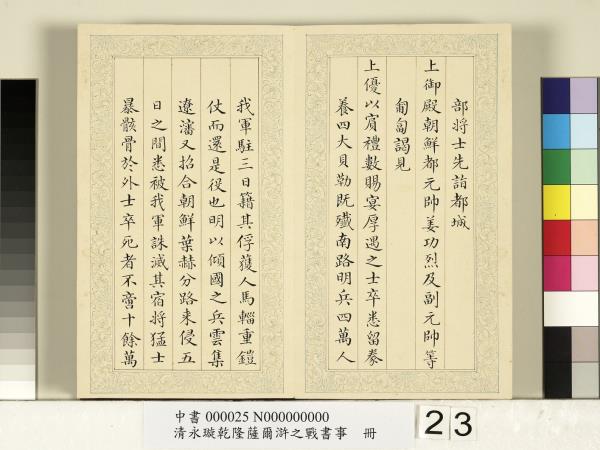 部將士先詣都城
上御殿朝鮮都元帥姜功烈及副元帥等
匍匐謁見
上優以賓禮數賜宴厚遇之士卒悉留豢
養四大貝勒既殲南路明兵四萬人
我軍駐三日籍其俘獲人馬輜重鎧
仗而還是役也明以傾國之兵雲集
遼瀋又招合朝鮮葉赫分路來侵五
日之間悉被我軍誅滅其宿將猛士
暴骸骨於外士卒死者不啻十餘萬
中書 000025 N000000000
清永璇乾隆薩爾滸之戰書事 冊
23